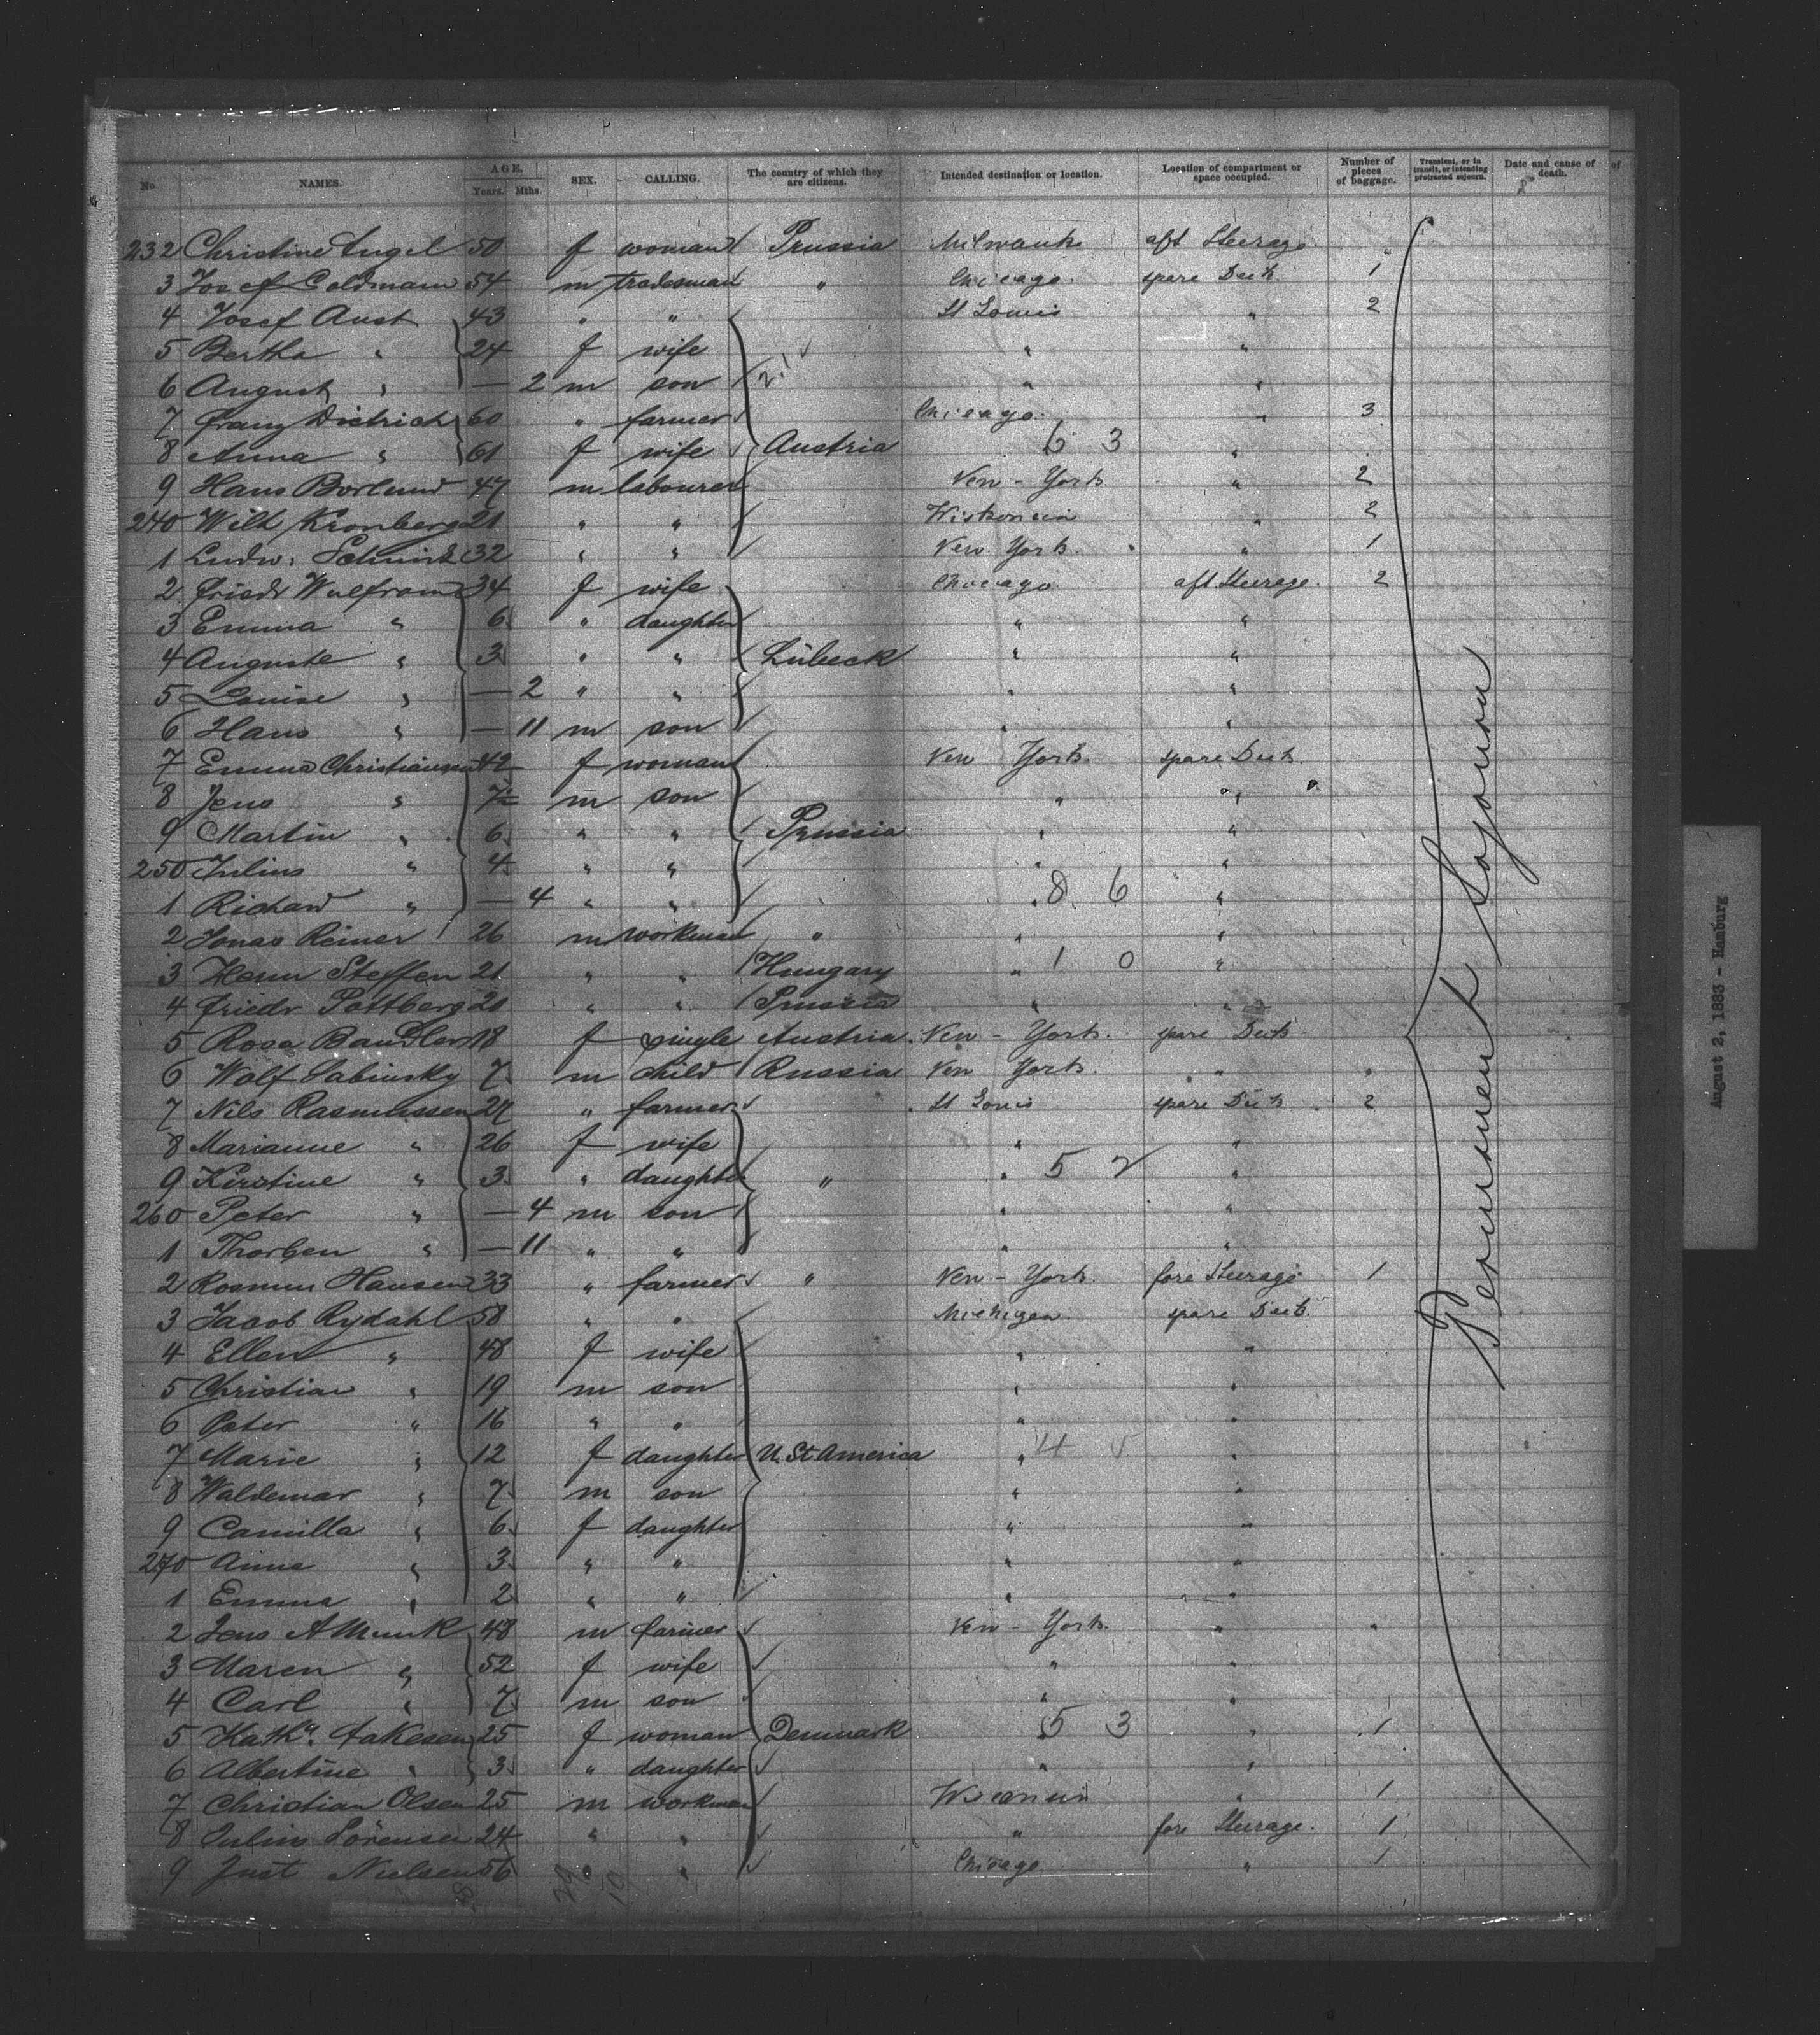 No. NAMES. AGE. Years. Mths. SEX. CALLING. The country of which they are citizens. Intended destination or location. Location of compartment or space occupied. Number of pieces of baggage. Transient, or in transit, or intending protracted sojourn. Date and cause of death.
232 Christine Engel 50 f woman Prussia Milwauk aft Steerage "
3 Josef Goldmann 54 m tradesman " Chicago spare Deck 1
4 Josef Aust 43 " " St Louis " 2
5 Bertha " 24 f wife " "
6 August " — 2 m son " "
7 Franz Dietrich 60 " farmer Chicago " 3
8 Anna " 61 f wife Austria 6 3 "
9 Hans Borlund 47 m labourer New-York " 2
240 Wilh Kronberg 21 " " Wiskonsin " 2
1 Ludw. Schmidt 32 " " New York " 1
2 Friedr Wulfram 34 f wife Chicago aft Steerage 2
3 Emma " 6 " daughter " "
4 Auguste " 3 " " Lübeck " "
5 Louise " — 2 " " " "
6 Hans " — 11 m son " "
7 Emma Christiansen 42 f woman New York spare Deck
8 Jens " 7 m son " "
9 Martin " 6 " " Prussia " "
250 Julius " 4 " " " "
1 Richard " — 4 " " " 8 6 "
2 Jonas Reimer 26 m workman " " "
3 Herm Steffen 21 " " Hungary " 1 0 "
4 Friedr Pottberg 21 " " Prussia " "
5 Rosa Bandler 18 f single Austria New-York spare Deck
6 Wolf Sabinsky 7 m child Russia New York " "
7 Nils Rasmussen 27 " farmer St Louis spare Deck 2
8 Marianne " 26 f wife " "
9 Kirstine " 3 " daughter " " 5 2 "
260 Peter " — 4 m son " "
1 Thorben " — 11 " " " "
2 Rasmus Hansen 33 " farmer " New-York fore Steerage 1
3 Jacob Rydahl 58 " " Michigan spare Deck
4 Ellen " 48 f wife " "
5 Christian " 19 m son " "
6 Peter " 16 " " " "
7 Marie " 12 f daughter U. St America " 4 "
8 Waldemar " 7 m son " "
9 Camilla " 6 f daughter " "
270 Anna " 3 " " " "
1 Emma " 2 " " " "
2 Jens A Munk 48 m farmer New-York " "
3 Maren " 52 f wife " "
4 Carl " 7 m son " "
5 Kath. 25 f woman Denmark 5 3 " 1
6 Albertine " 3 " daughter " "
7 Christian Olsen 25 m workman Wisconsin " 1
8 Julius Sörensen 24 " " " fore Steerage 1
9 Just Nielsen 56 " " Chicago " 1
Permanent Sojourn
August 2, 1883 - Hamburg